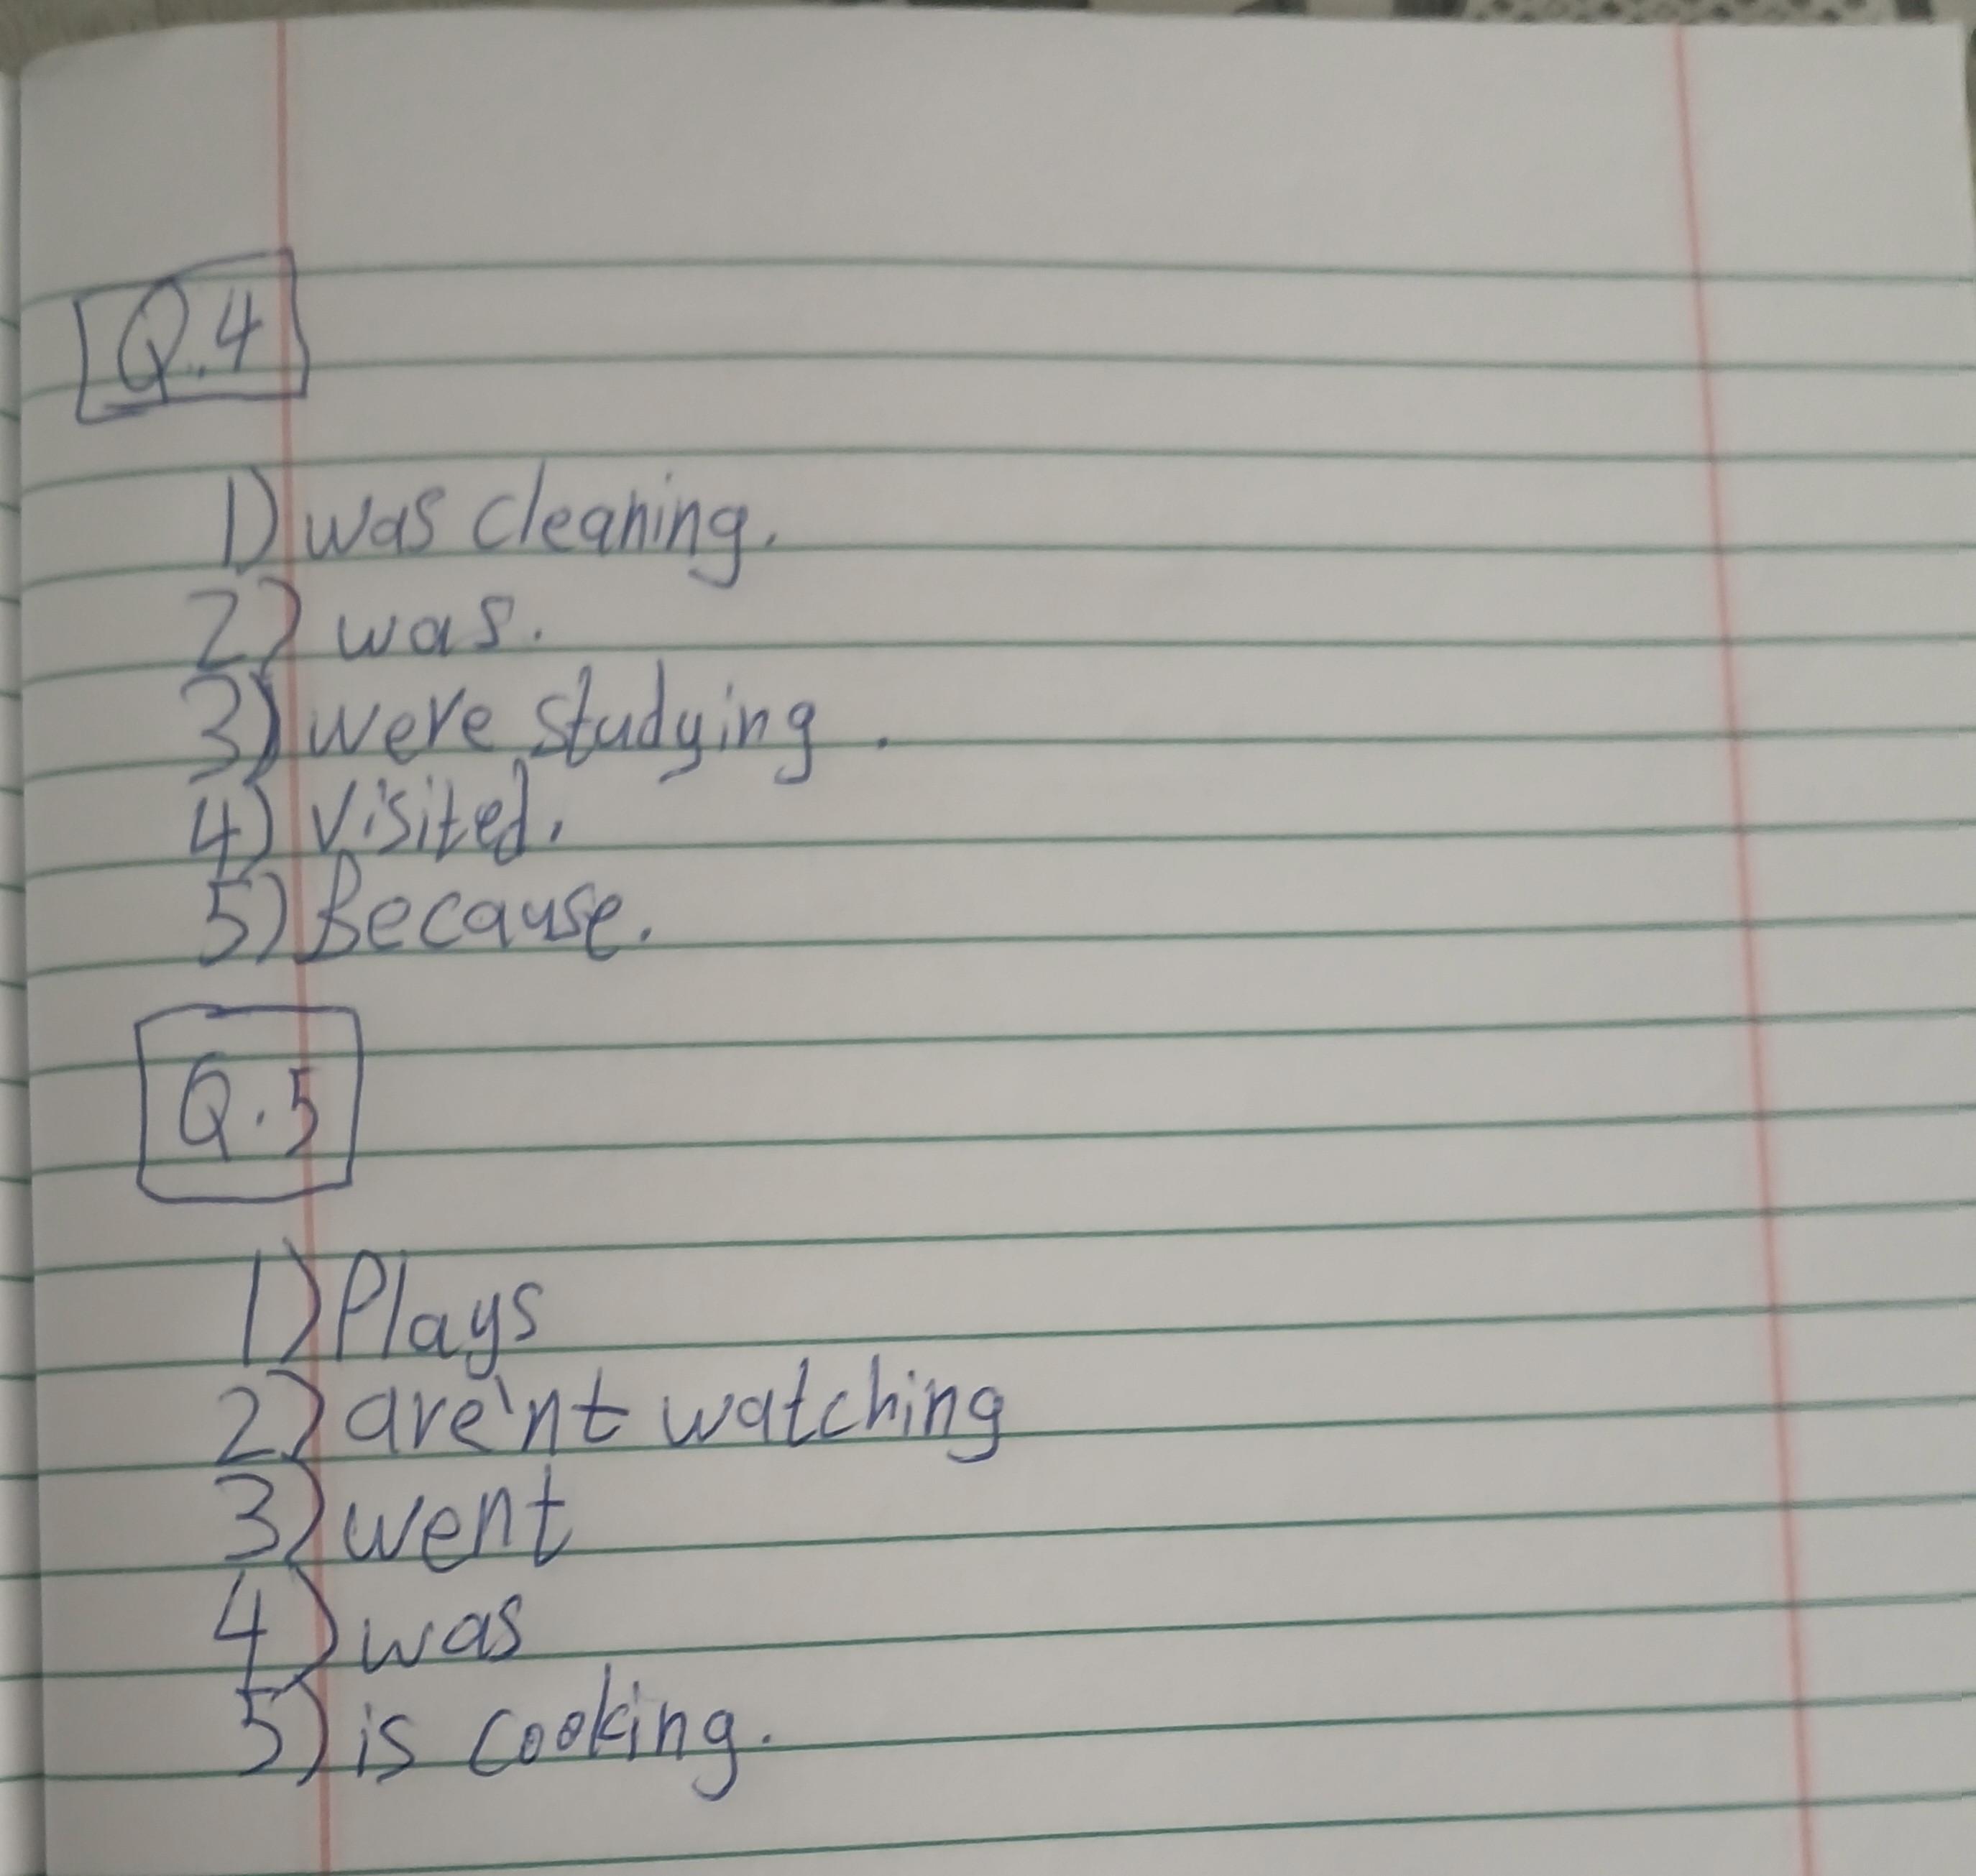 Q.4
1) was cleaning.
2) was.
3) were studying.
4) visited.
5) Because.
Q.5
1) Plays
2) are'nt watching
3) went
4) was
5) is cooking.